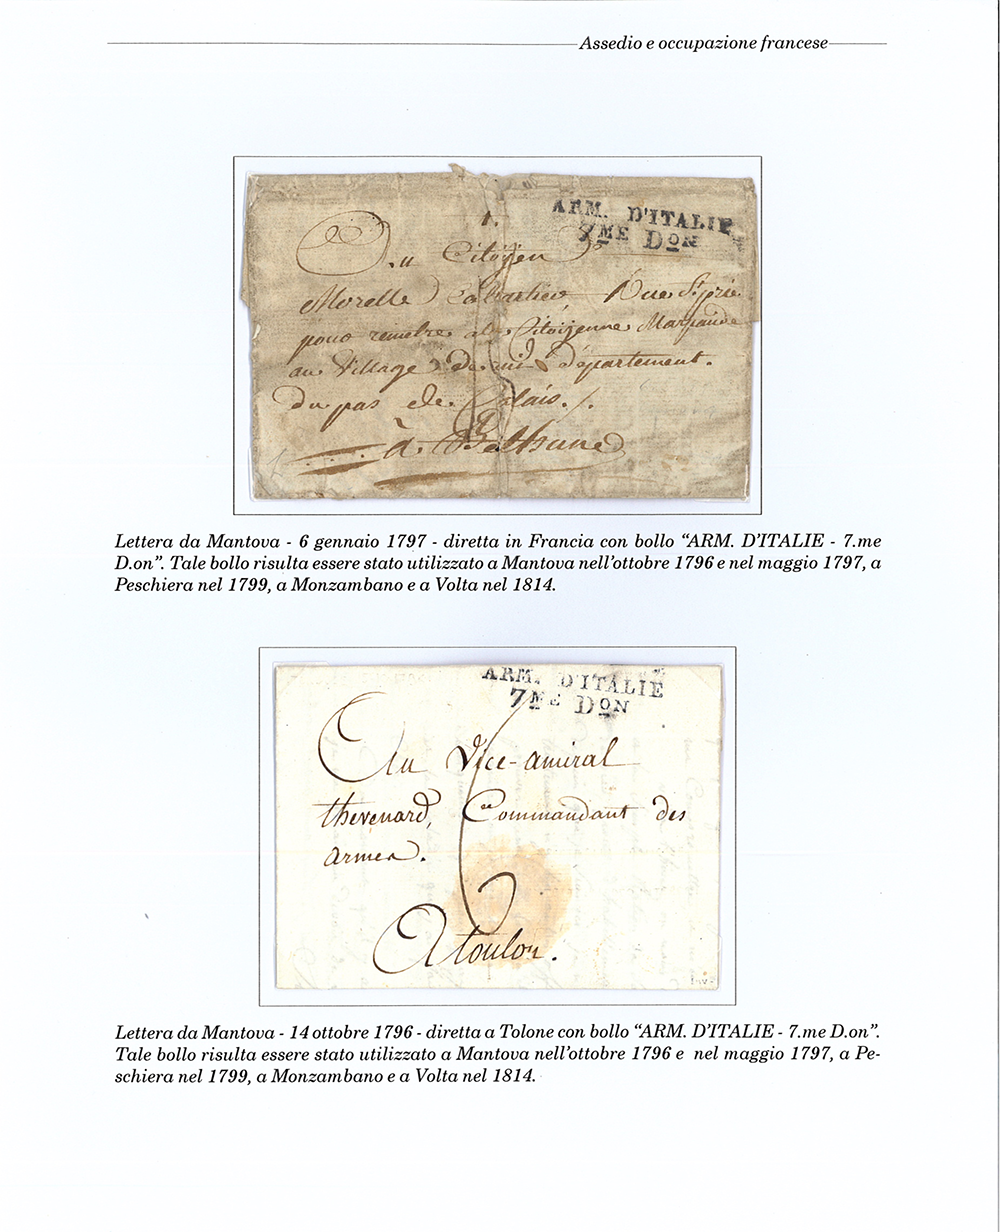 Assedio e occupazione francese
ARM. D'ITALIE
7ME DON
1.
Au Citoyen
Morelle Rue St prie
pour remetre a la Citoijenne
au Village de département.
du pas de Calais./.
à Bethune
Lettera da Mantova - 6 gennaio 1797 - diretta in Francia con bollo “ARM. D’ITALIE - 7.me
D.on”. Tale bollo risulta essere stato utilizzato a Mantova nell’ottobre 1796 e nel maggio 1797, a
Peschiera nel 1799, a Monzambano e a Volta nel 1814.
ARM. D'ITALIE
7ME DON
Au Vice-amiral
thevenard, Commandant des
armes.
A toulon.
Inv.
Lettera da Mantova - 14 ottobre 1796 - diretta a Tolone con bollo “ARM. D’ITALIE - 7.me D.on”.
Tale bollo risulta essere stato utilizzato a Mantova nell’ottobre 1796 e nel maggio 1797, a Pe-
schiera nel 1799, a Monzambano e a Volta nel 1814.